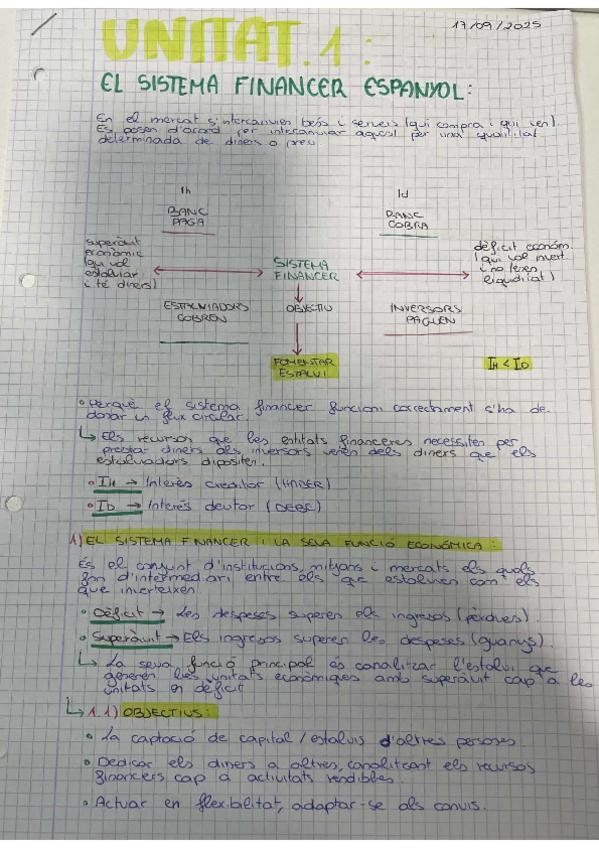 17/09/2025
UNITAT.1:
EL SISTEMA FINANCER ESPANYOL:
En el mercat s'intercanvien béns i serveis (qui compra i qui ven).
Es posen d'acord per intercanviar aquest per una quantitat
determinada de diners o preu
Ih
Id
BANC
PAGA
BANC
COBRA
superàvit
econòmic
(qui vol
estalviar
i té diners)
SISTEMA
FINANCER
dèficit econòm.
(qui vol invert.
i no tenen
liquiditat)
ESTALVIADORS
COBREN
OBJECTIU
INVERSORS
PAGUEN
FOMENTAR
ESTALVI
IH < ID
Perquè el sistema financer funcioni correctament s'ha de
donar un flux circular.
↳ Els recursos que les entitats financeres necessiten per
prestar diners als inversors venen dels diners que els
estalviadors dipositen.
• IH → Interès creditor (HABER)
• ID → Interès deutor (DEBE)
1) EL SISTEMA FINANCER I LA SEVA FUNCIÓ ECONÒMICA:
És el conjunt d'institucions, mitjans i mercats els quals
fan d'intermediari entre els que estalvien com els
que inverteixen
• Dèficit → Les despeses superen els ingresos (pèrdues).
• Superàvit → Els ingresos superen les despeses (guanys).
↳ La seva funció principal és canalitzar l'estalvi que
generen les unitats econòmiques amb superàvit cap a les
unitats en dèficit
↳ 1.1) OBJECTIUS:
• La captació de capital / estalvis d'altres persones.
• Dedicar els diners a altres, canalitzant els recursos
financiers cap a activitats rendibles.
• Actuar en flexibilitat, adaptar-se als canvis.